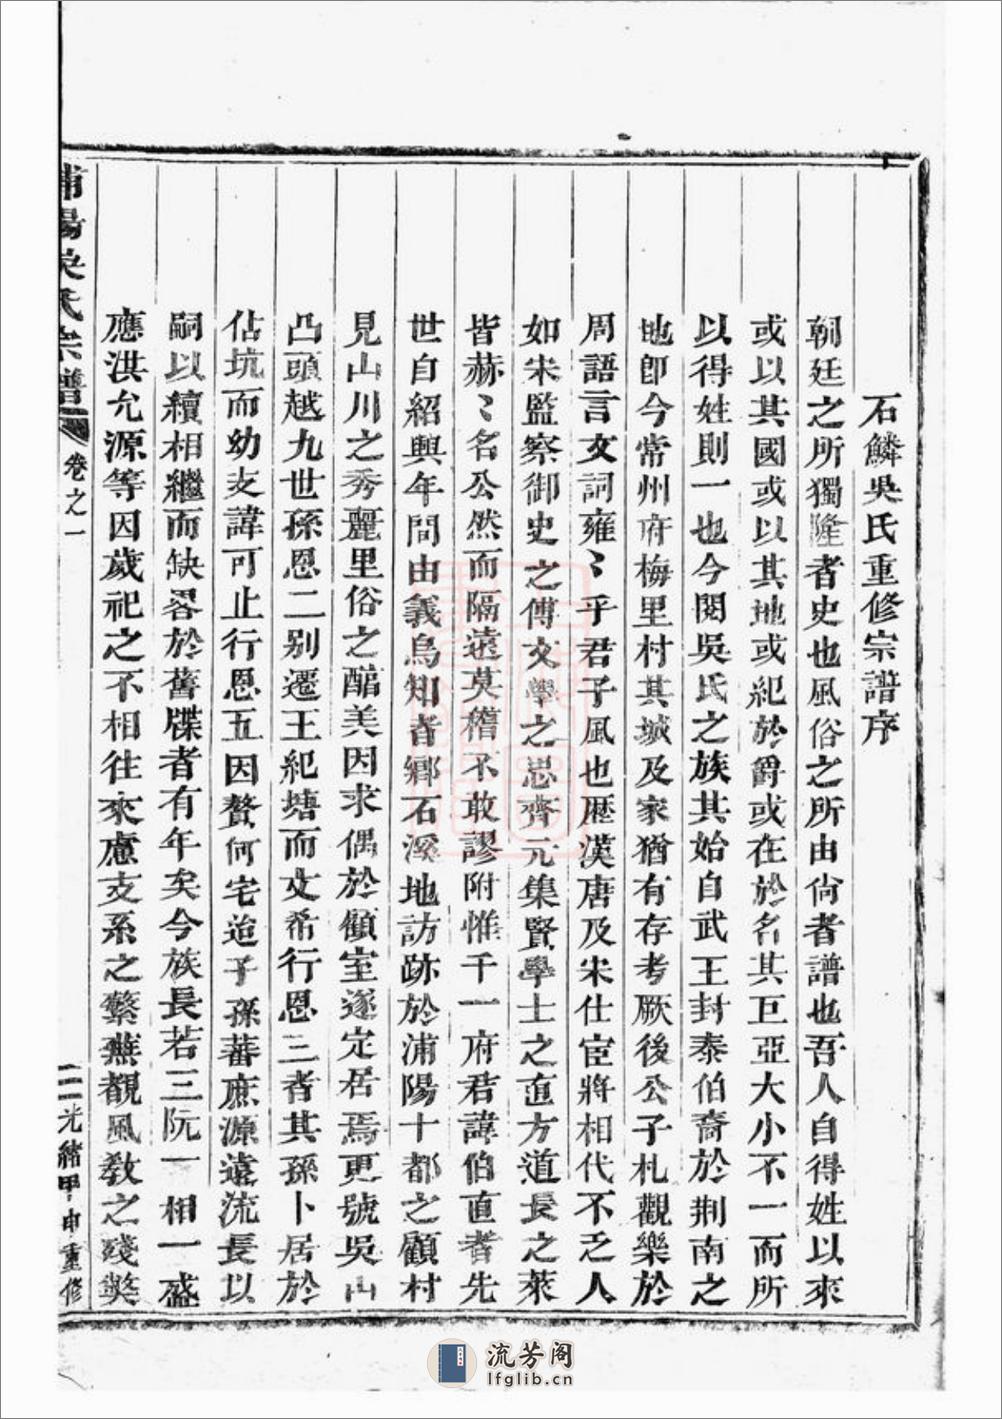 石鱗吳氏重修宗譜序
朝廷之所獨隆者史也風俗之所由尙者譜也吾人自得姓以來
或以其國或以其地或紀於爵或在於名其巨亞大小不一而所
以得姓則一也今閱吳氏之族其始自武王封泰伯裔於荆南之
地卽今常州府梅里村其城及家猶有存考厥後公子札觀樂於
周語言文詞雍〻乎君子風也歷漢唐及宋仕宦將相代不乏人
如宋監察御史之傅文學之思齊元集賢學士之直方道長之萊
皆赫〻名公然而隔遠莫稽不敢謬附惟千一府君諱伯直者先
世自紹興年間由義烏知者鄉石溪地訪跡於浦陽十都之顧村
見山川之秀麗里俗之醕美因求偶於顧室遂定居焉更號吳山
凸頭越九世孫恩二别遷王紀塘而文希行恩三者其孫卜居於
佔坑而幼支諱可止行恩五因贅何宅迨子孫蕃庶源遠流長以
嗣以續相繼而缺畧於舊牒者有年矣今族長若三阮一相一盛
應洪允源等因歲祀之不相往來慮支系之繁蕪覩風敎之殘獘
浦陽吳氏宗譜
卷之一
二
光緒甲申重修
流芳阁
lfglib.cn